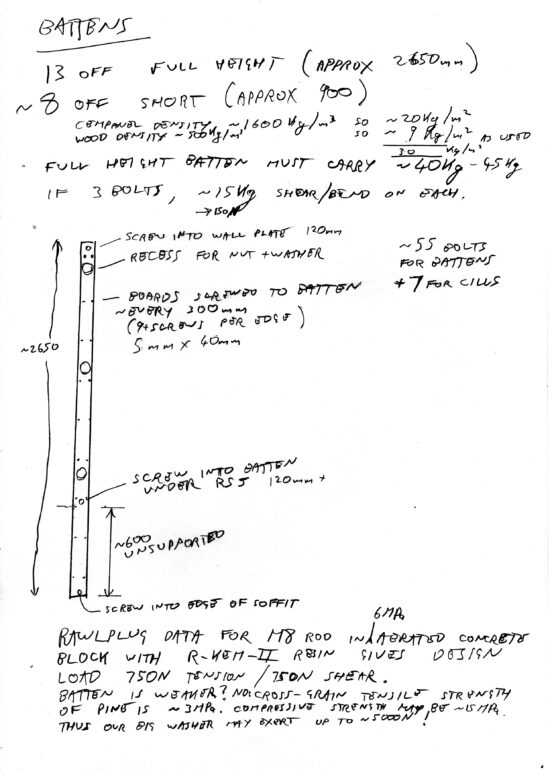 BATTENS
13 OFF FULL HEIGHT (APPROX 2650mm)
~8 OFF SHORT (APPROX 900)
COMPANEL DENSITY ~1600 Kg/m³ SO ~20Kg/m²
WOOD DENSITY ~500Kg/m³ SO ~9Kg/m² AS USED
30 Kg/m²
FULL HEIGHT BATTEN MUST CARRY ~40Kg-45Kg
IF 3 BOLTS, ~15Kg SHEAR/BEND ON EACH.
→150N
SCREW INTO WALL PLATE 120mm
RECESS FOR NUT + WASHER
~55 BOLTS
FOR BATTENS
+7 FOR CILLS
BOARDS SCREWED TO BATTEN
~EVERY 300mm
(9+SCREWS PER EDGE)
5mm x 40mm
~2650
SCREW INTO BATTEN
UNDER RSJ 120mm+
~600
UNSUPPORTED
SCREW INTO EDGE OF SOFFIT
6MPa
RAWLPLUG DATA FOR M8 ROD IN AERATED CONCRETE
BLOCK WITH R-KEM-II RESIN GIVES DESIGN
LOAD 750N TENSION / 750N SHEAR.
BATTEN IS WEAKER? NO: CROSS-GRAIN TENSILE STRENGTH
OF PINE IS ~3MPa. COMPRESSIVE STRENGTH MAY BE ~15MPa.
THUS OUR BIG WASHER MAY EXERT UP TO ~5000N!